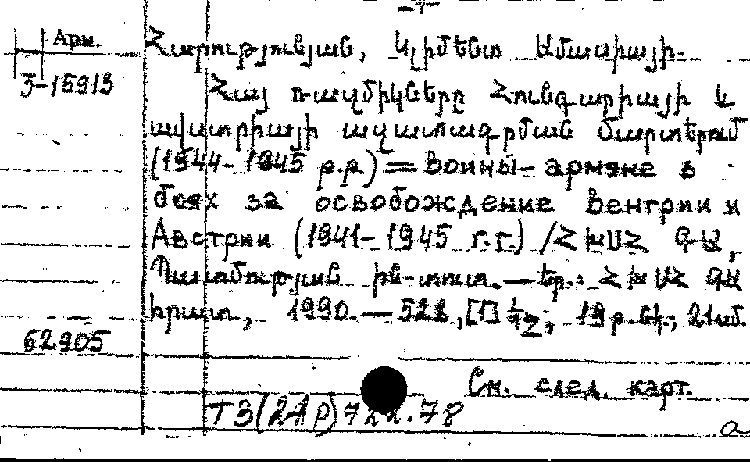 Арм.
Հարությունյան, Կլիմենտ Ամասիայի.
3-15913
Հայ ռազմիկները Հունգարիայի և
Ավստրիայի ազատագրման մարտերում
(1944-1945 թ.թ) = Воины-армяне в
боях за освобождение Венгрии и
Австрии (1941-1945 г.г.) / ՀԽՍՀ ԳԱ,
Պատմության ին-տուտ. — Եր.: ՀԽՍՀ ԳԱ
հրատ, 1990. — 52
62905
См. след. карт.
Т3(2Ар)722.78
а